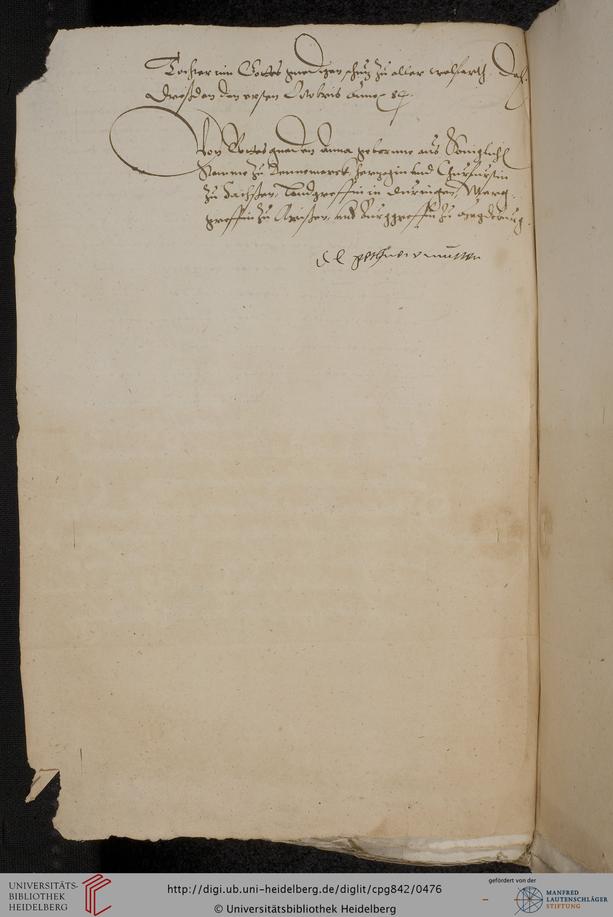 Tochter inn Gottes gnedigen schutz zu aller wolfarth. Dat.
Dreßden den ersten Octobris Anno 84.
Von Gottes gnaden Anna geborne aus Königlichem
Stamme zu Dennemarck, Hertzogin und Churfurstin
zu Sachssen, Landgreffin in Duringen, Marg-
greffin zu Meissen, und Burggreffin zu Magdeburg.
UNIVERSITÄTS-
BIBLIOTHEK
HEIDELBERG
http://digi.ub.uni-heidelberg.de/diglit/cpg842/0476
© Universitätsbibliothek Heidelberg
gefördert von der
MANFRED
LAUTENSCHLÄGER
STIFTUNG